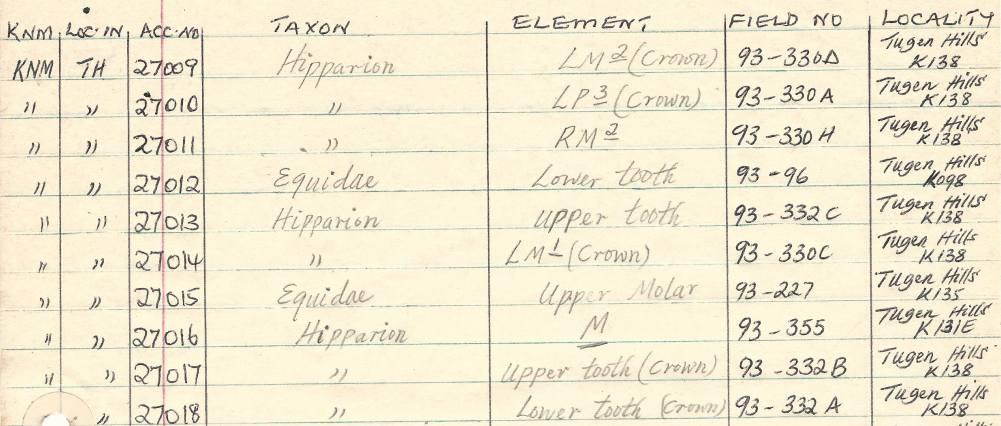 KNM LOC·IN ACC·NO TAXON ELEMENT FIELD NO LOCALITY
KNM TH 27009 Hipparion LM2 (Crown) 93-330D Tugen Hills K138
" " 27010 " LP3 (Crown) 93-330A Tugen Hills K138
" " 27011 " RM2 93-330H Tugen Hills K138
" " 27012 Equidae Lower tooth 93-96 Tugen Hills K098
" " 27013 Hipparion upper tooth 93-332C Tugen Hills K138
" " 27014 " LM1 (Crown) 93-330C Tugen Hills K138
" " 27015 Equidae Upper Molar 93-227 Tugen Hills K135
" " 27016 Hipparion M 93-355 Tugen Hills K131E
" " 27017 " Upper tooth (Crown) 93-332B Tugen Hills K138
" 27018 " Lower tooth (Crown) 93-332A Tugen Hills K138